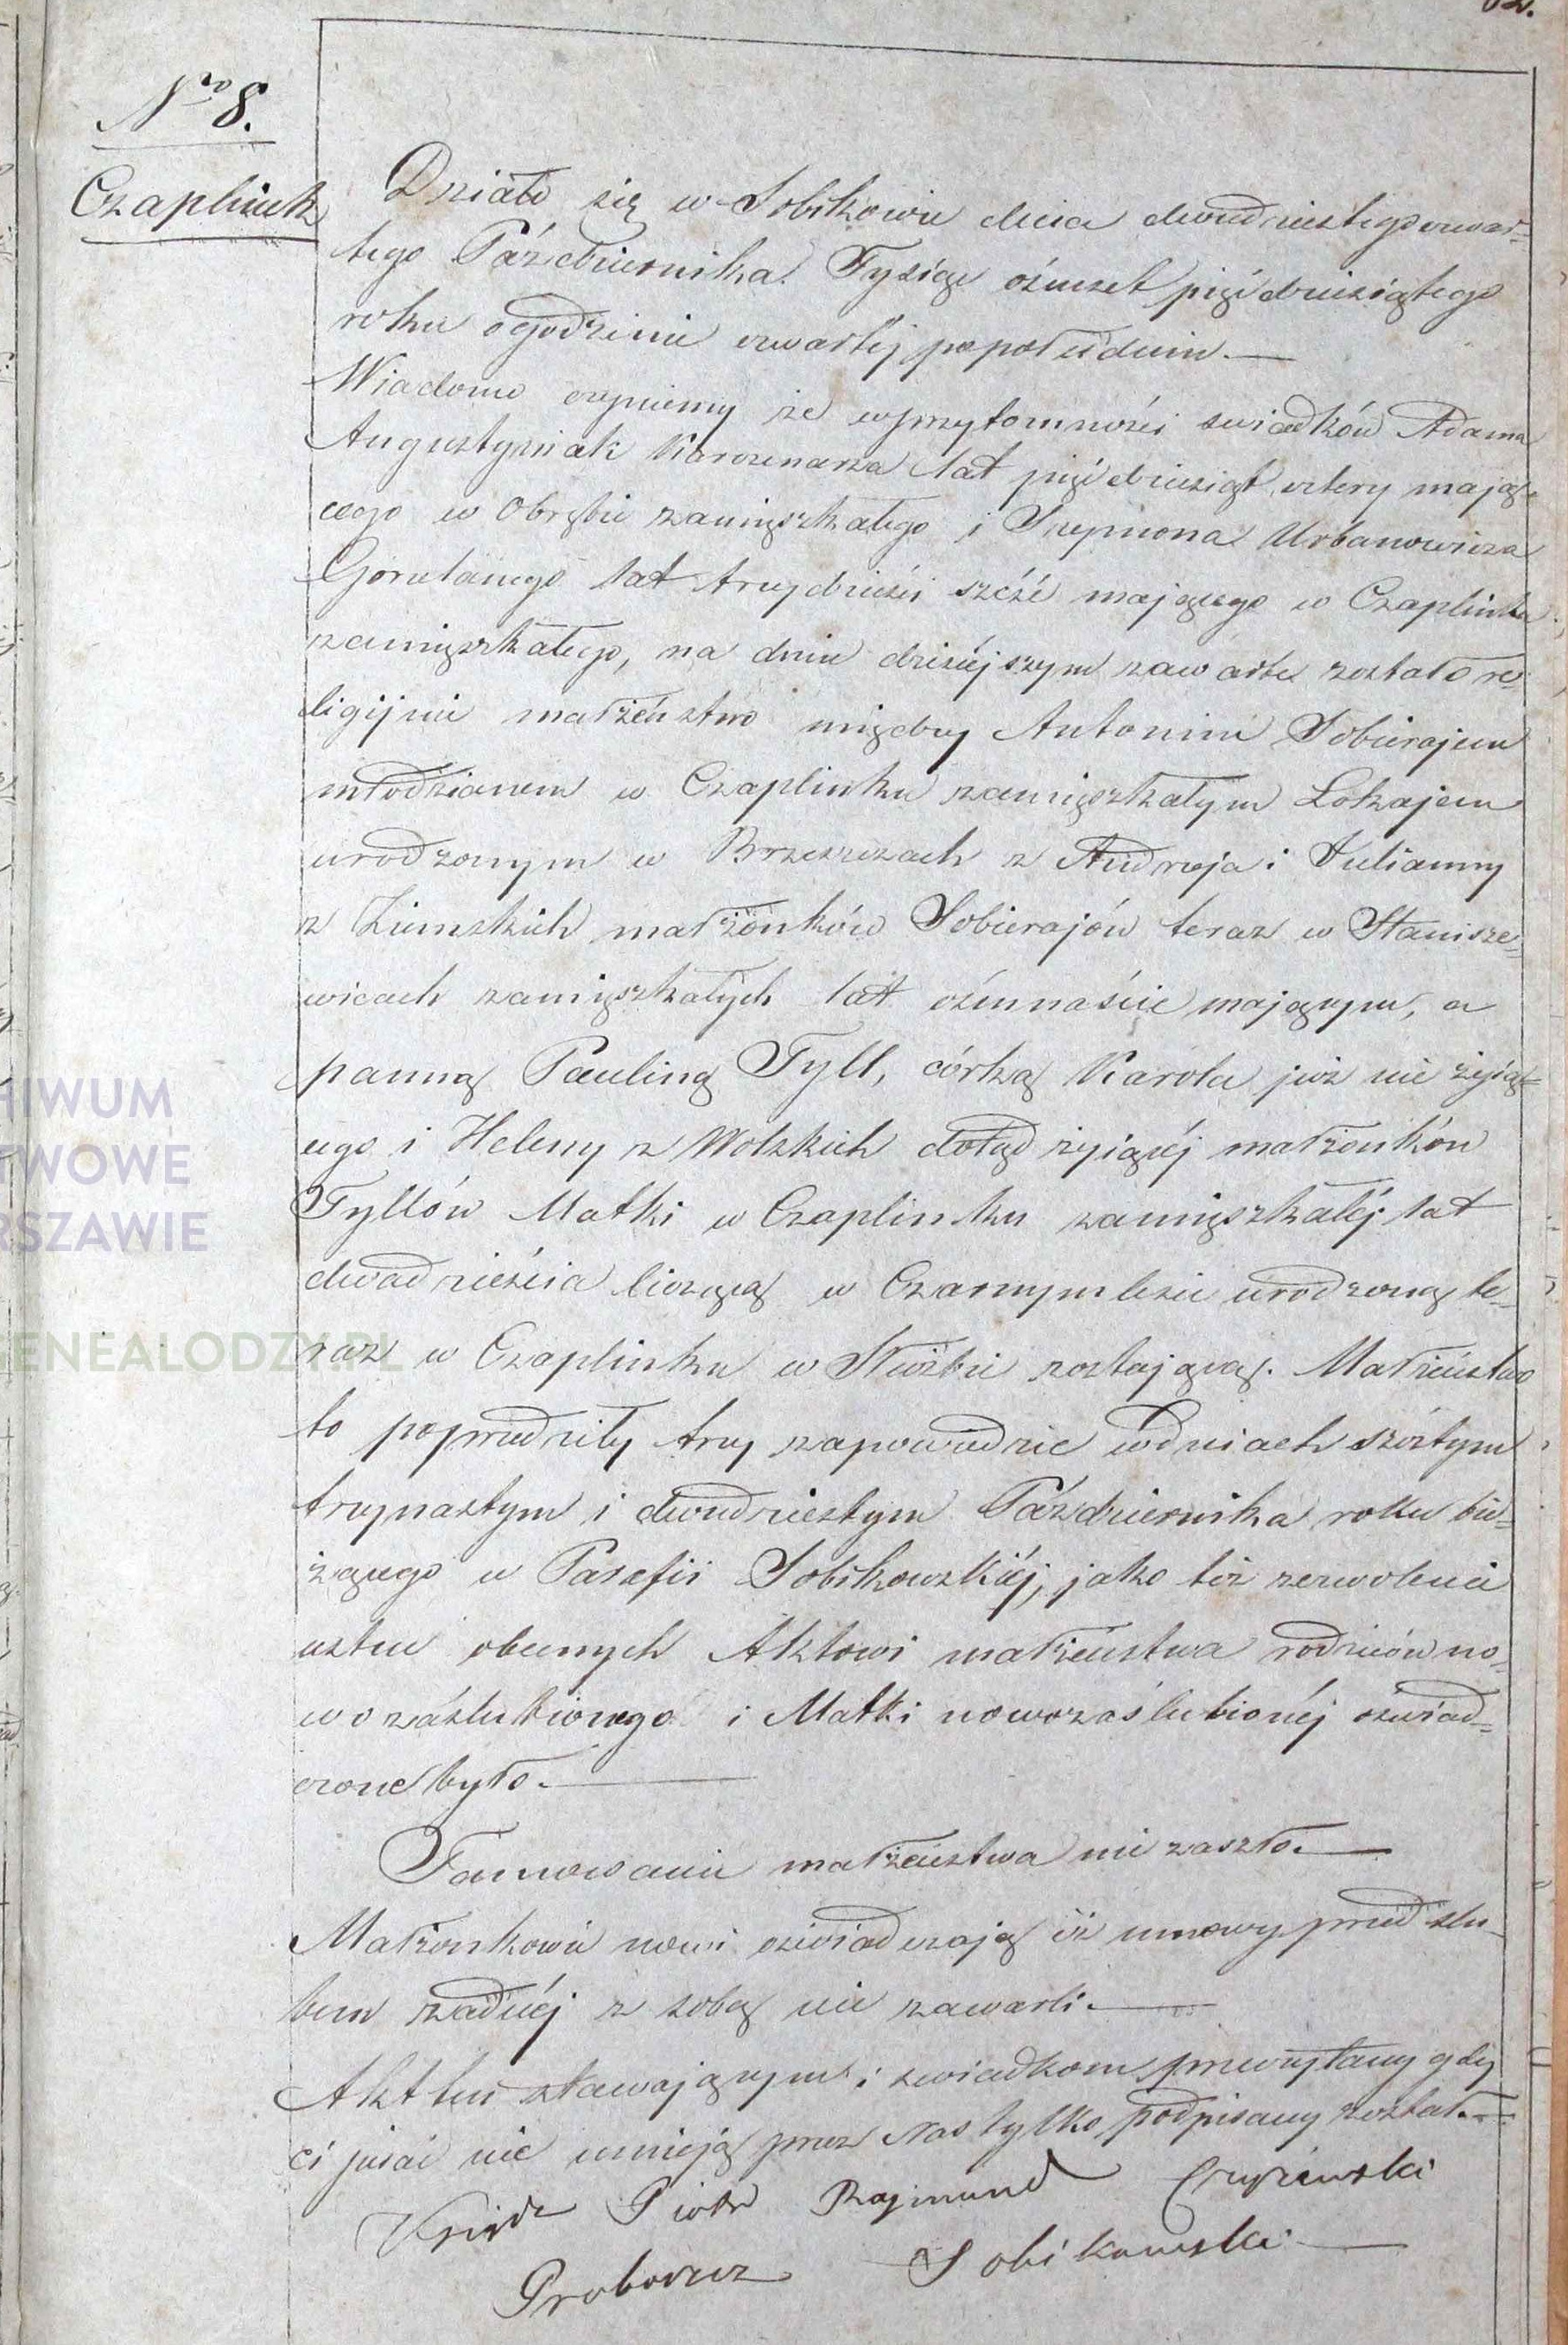 Nro 8.
Czaplinek
Działo się w Sobikowie dnia dwudziestego czwar=
tego Października Tysiąc ośmset pięćdziesiątego
roku o godzinie czwartej popołudniu.—
Wiadomo czyniemy że w przytomności swiadków Adama
Augustyniak Karczmarza lat pięćdziesiąt cztery mają=
cego w Obrębie zamięszkałego i Szymona Urbanowicza
Gorzelanego lat trzydzieści sześć mającego w Czaplinku
zamięszkałego, na dniu dzisiéjszym zawarte zostało re=
ligijnie małżeństwo między Antonim Sobierajem
młodzianem w Czaplinku zamięszkałym Lokajem
urodzonym w Brzeszczach z Andrzeja i Julianny
z Ziemskich małżonków Sobierajów teraz w Stanisze=
wicach zamięszkałych lat ośmnaście mającym, a
panną Pauliną Tyll, córką Karola już nie żyiąc=
ego i Heleny z Wolskich dotąd żyiącéj małżonków
Tyllów Matki w Czaplinku zamięszkałéj lat
dwadzieścia liczącą w Czarnymlesie urodzoną te=
raz w Czaplinku w Służbie zostającą. Małżeństwo
to poprzedziły trzy zapowiedzie w dniach szóstym
trzynastym i dwudziestym Października roku bie=
żącego w Parafii Sobikowskiéj, jako też zezwolenie
ustne obecnych Aktowi małżeństwa rodziców no=
wozáślubionego i Matki nowozaślubionéj oświad=
czone było.—
Tamowanie małżeństwa nie zaszło.—
Małżonkowie nowi oświadczają iż umowy przedślu=
bnéj żadnéj z sobą nie zawarli.—
Akt ten stawającym i swiadkom przeczytany gdy
ci pisać nie umieją przez Nas tylko podpisany został.—
Ksiądz Piotr Rajmund
Proboszcz Sobikowski—
HIWUM
TWOWE
RSZAWIE
ENEALODZY.PL